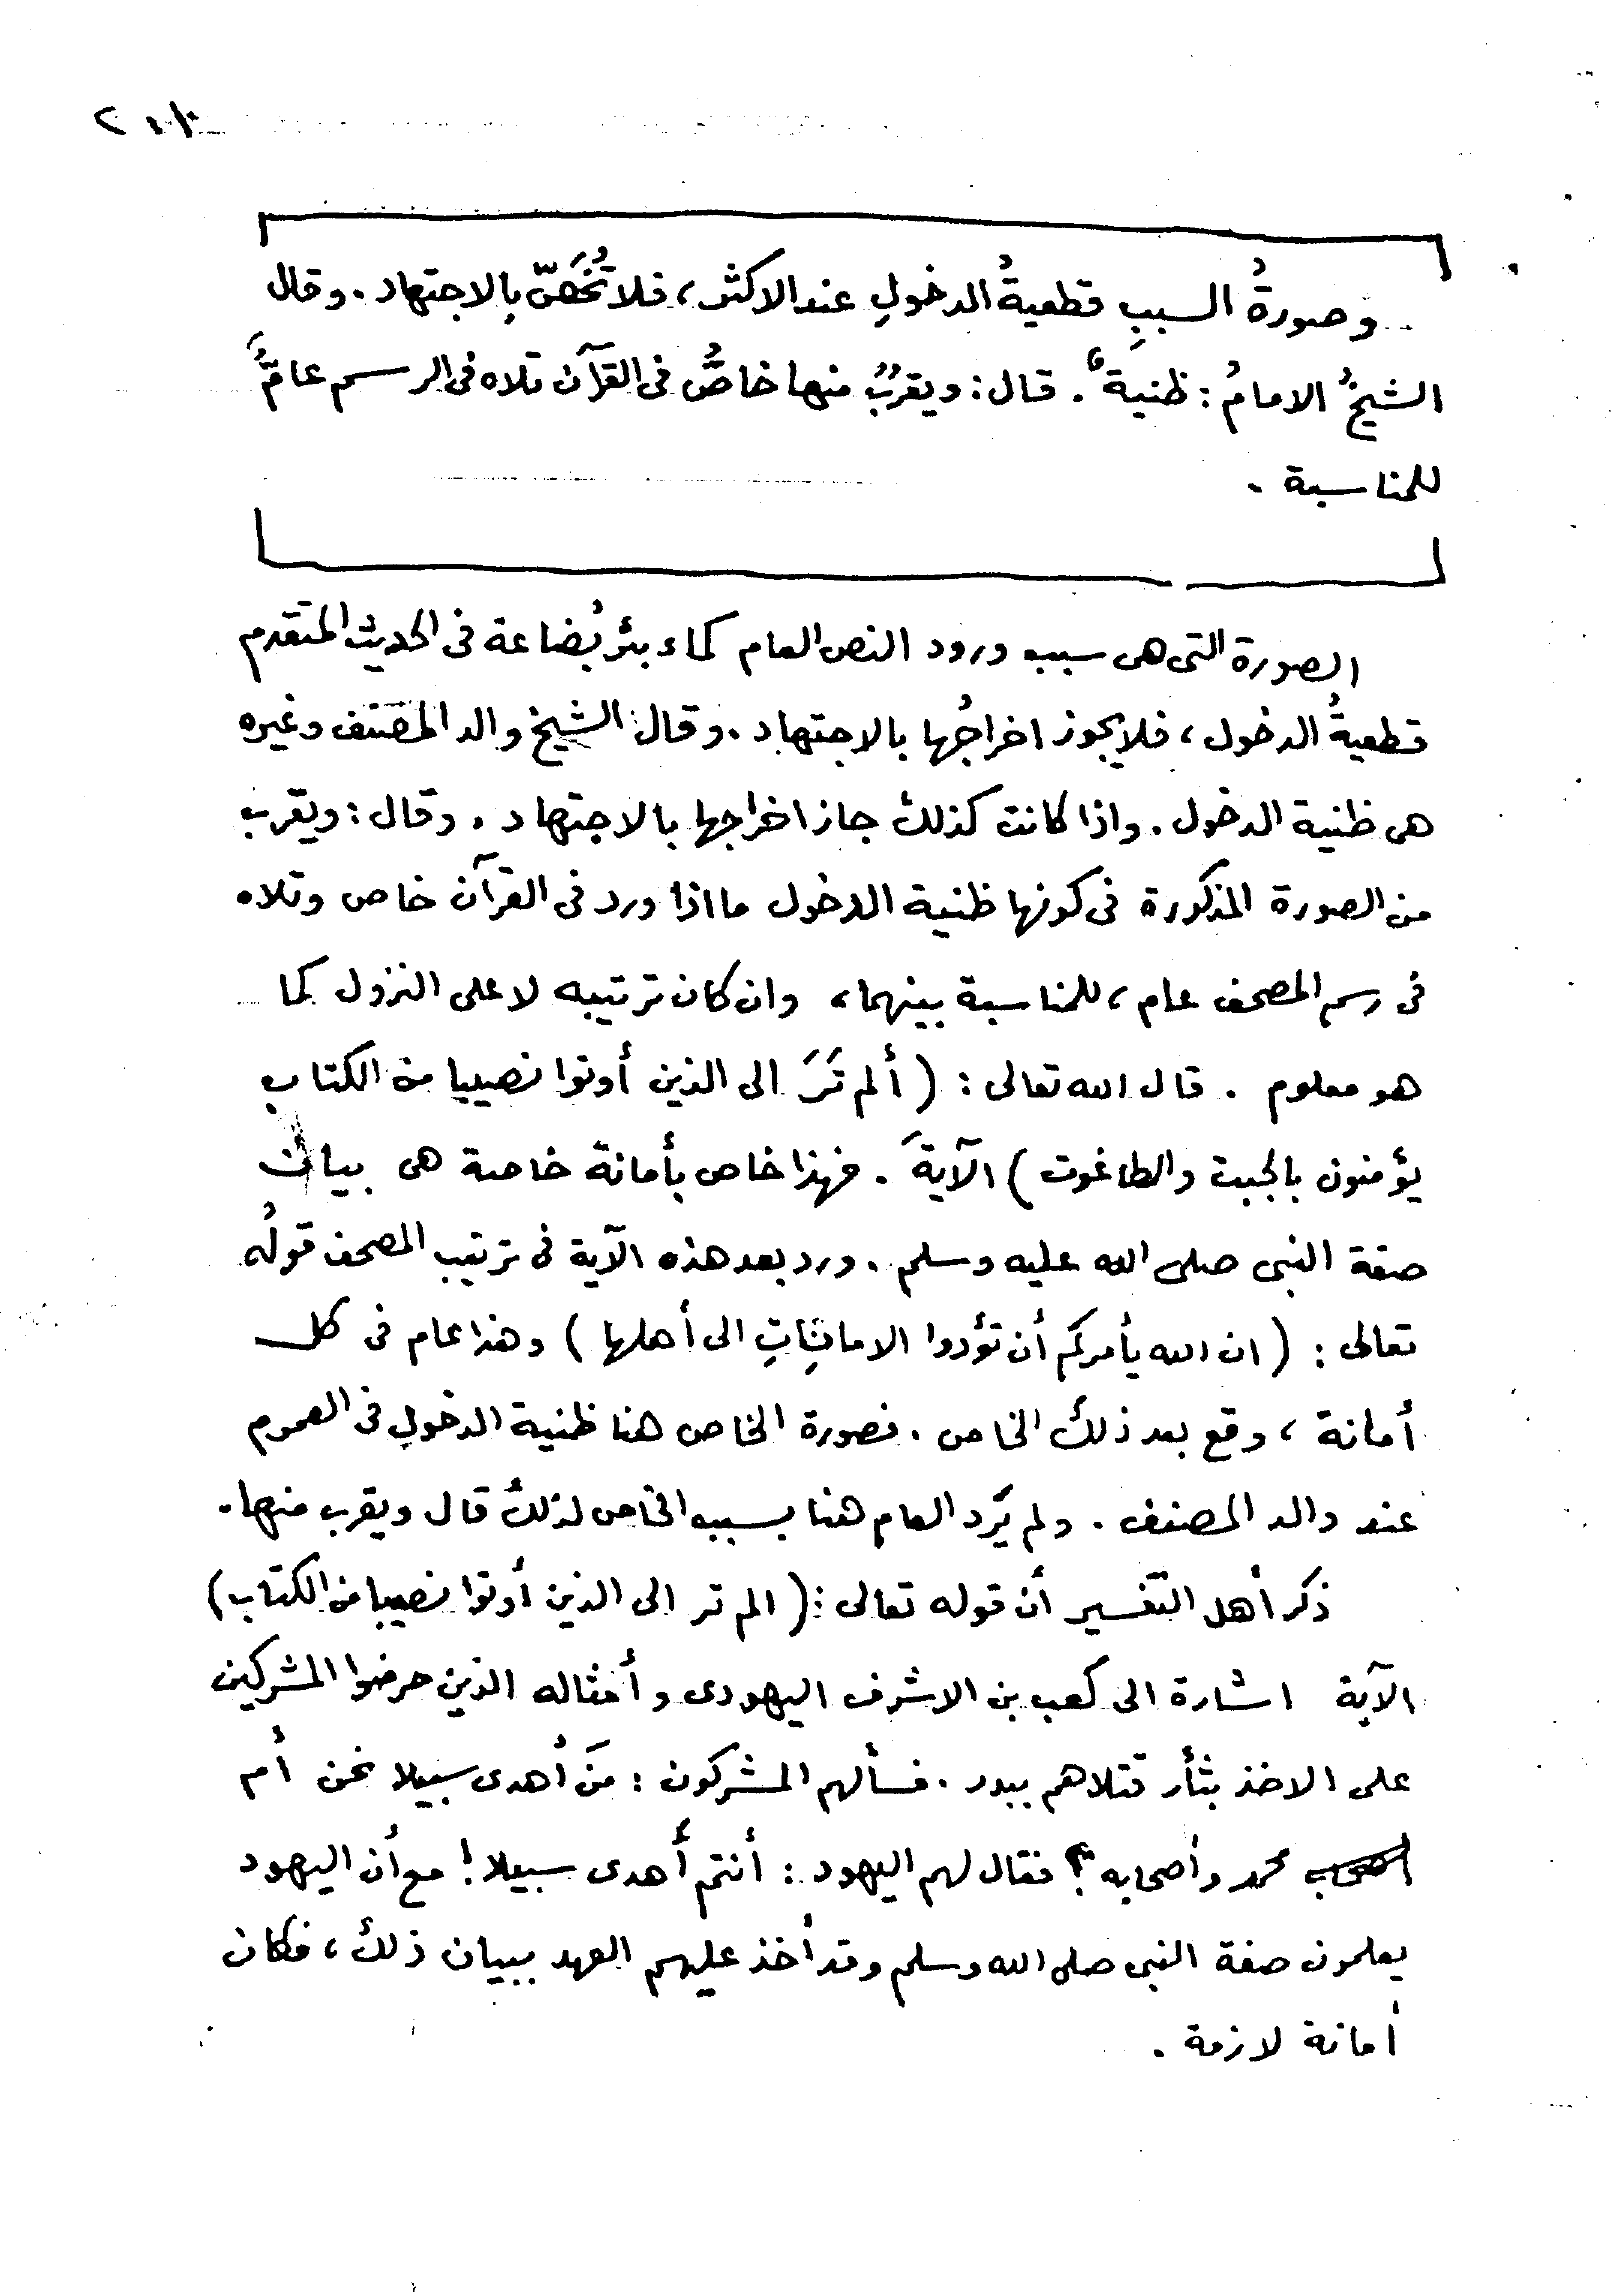 وصورةُ السببِ قطعيةُ الدخولِ عند الاكثر، فلا تُخَصّ بالاجتهاد. وقال
الشيخُ الامامُ: ظنيةٌ. قال: ويقربُ منها خاصٌّ فى القرآن تلاه فى الرسم عامٌّ
للمناسبة.
الصورة التى هى سبب ورود النص العام كماء بئر بُضاعة فى الحديث المتقدم
قطعيةُ الدخول، فلا يجوز اخراجُها بالاجتهاد. وقال الشيخ والد المصنف وغيره
هى ظنية الدخول. واذا كانت كذلك جاز اخراجها بالاجتهاد. وقال: ويقرب
من الصورة المذكورة فى كونها ظنية الدخول ما اذا ورد فى القرآن خاص وتلاه
فى رسم المصحف عام، للمناسبة بينهما، وان كان ترتيبه لا على النزول كما
هو معلوم. قال الله تعالى: (ألم تَرَ الى الذين أوتوا نصيبا من الكتاب
يؤمنون بالجبت والطاغوت) الآيةَ. فهذا خاص بأمانة خاصة هى بيان
صفة النبى صلى الله عليه وسلم. ورد بعد هذه الآية فى ترتيب المصحف قولُه
تعالى: (ان الله يأمركم أن تؤدوا الاماناتِ الى أهلها) وهذا عام فى كل
أمانة، وقع بعد ذلك الخاص. فصورة الخاص هنا ظنية الدخول فى العموم
عند والد المصنف. ولم يَرد العام هنا بسبب الخاص لذلك قال ويقرب منها.
ذكر أهل التفسير أن قوله تعالى: (الم تر الى الذين أوتوا نصيبا من الكتاب)
الآية اشارة الى كعب بن الاشرف اليهودى وأمثاله الذين حرضوا المشركين
على الاخذ بثأر قتلاهم ببدر. فسألهم المشركون: مَن أهدى سبيلا نحن أم
محمد وأصحابه؟ فقال لهم اليهود: أنتم أهدى سبيلا! مع أن اليهود
يعلمون صفة النبى صلى الله وسلم وقد أخذ عليهم العهد ببيان ذلك، فكان
أمانة لازمة.